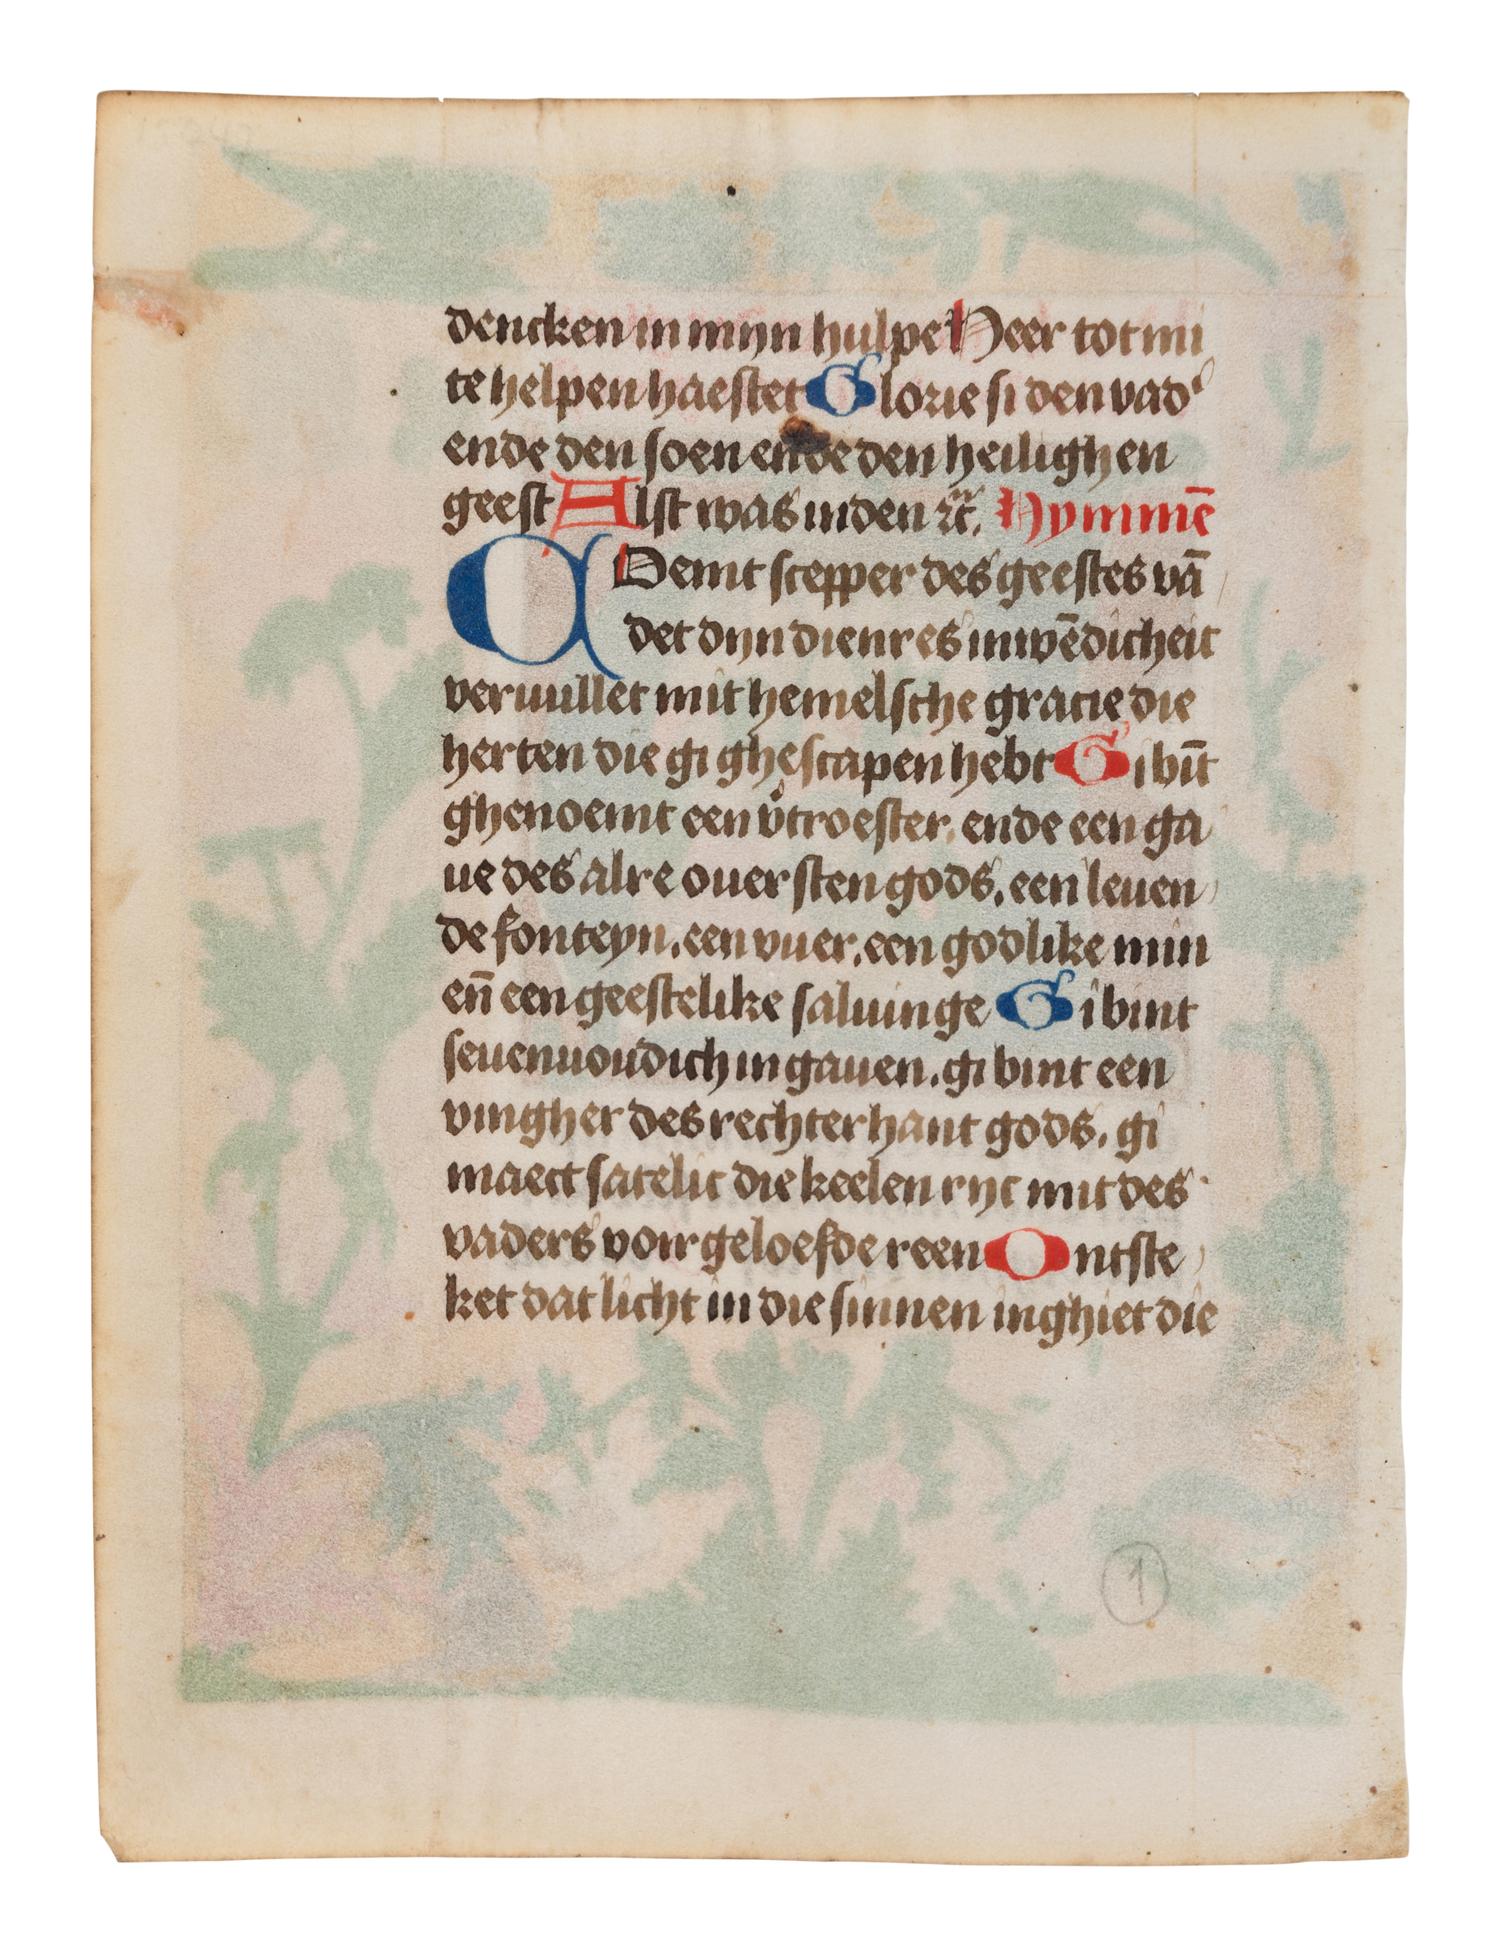 dencken in myn hulpe Heer tot mi
te helpen haestet Glorie si den vad'
ende den soen ende den heilighen
geest Alst was inden ꝛc̃. Hymnē
COemt scepper des geestes vā
det dyn dienres inwēdicheit
veruullet mit hemelsche gracie die
herten die gi ghescapen hebt Gi bīt
ghenoemt een v̾troester. ende een ga
ue des alre ouersten gods. een leuen
de fonteyn. een vuer. een godlike min
en̄ een geestelike saluinge Gi bint
seuenuoudich in gauen. gi bint een
vingher des rechterhant gods. gi
maect satelic die keelen ryc mit des
vaders voirgeloefde reen Ontste
ket dat licht in die sinnen inghiet die
1